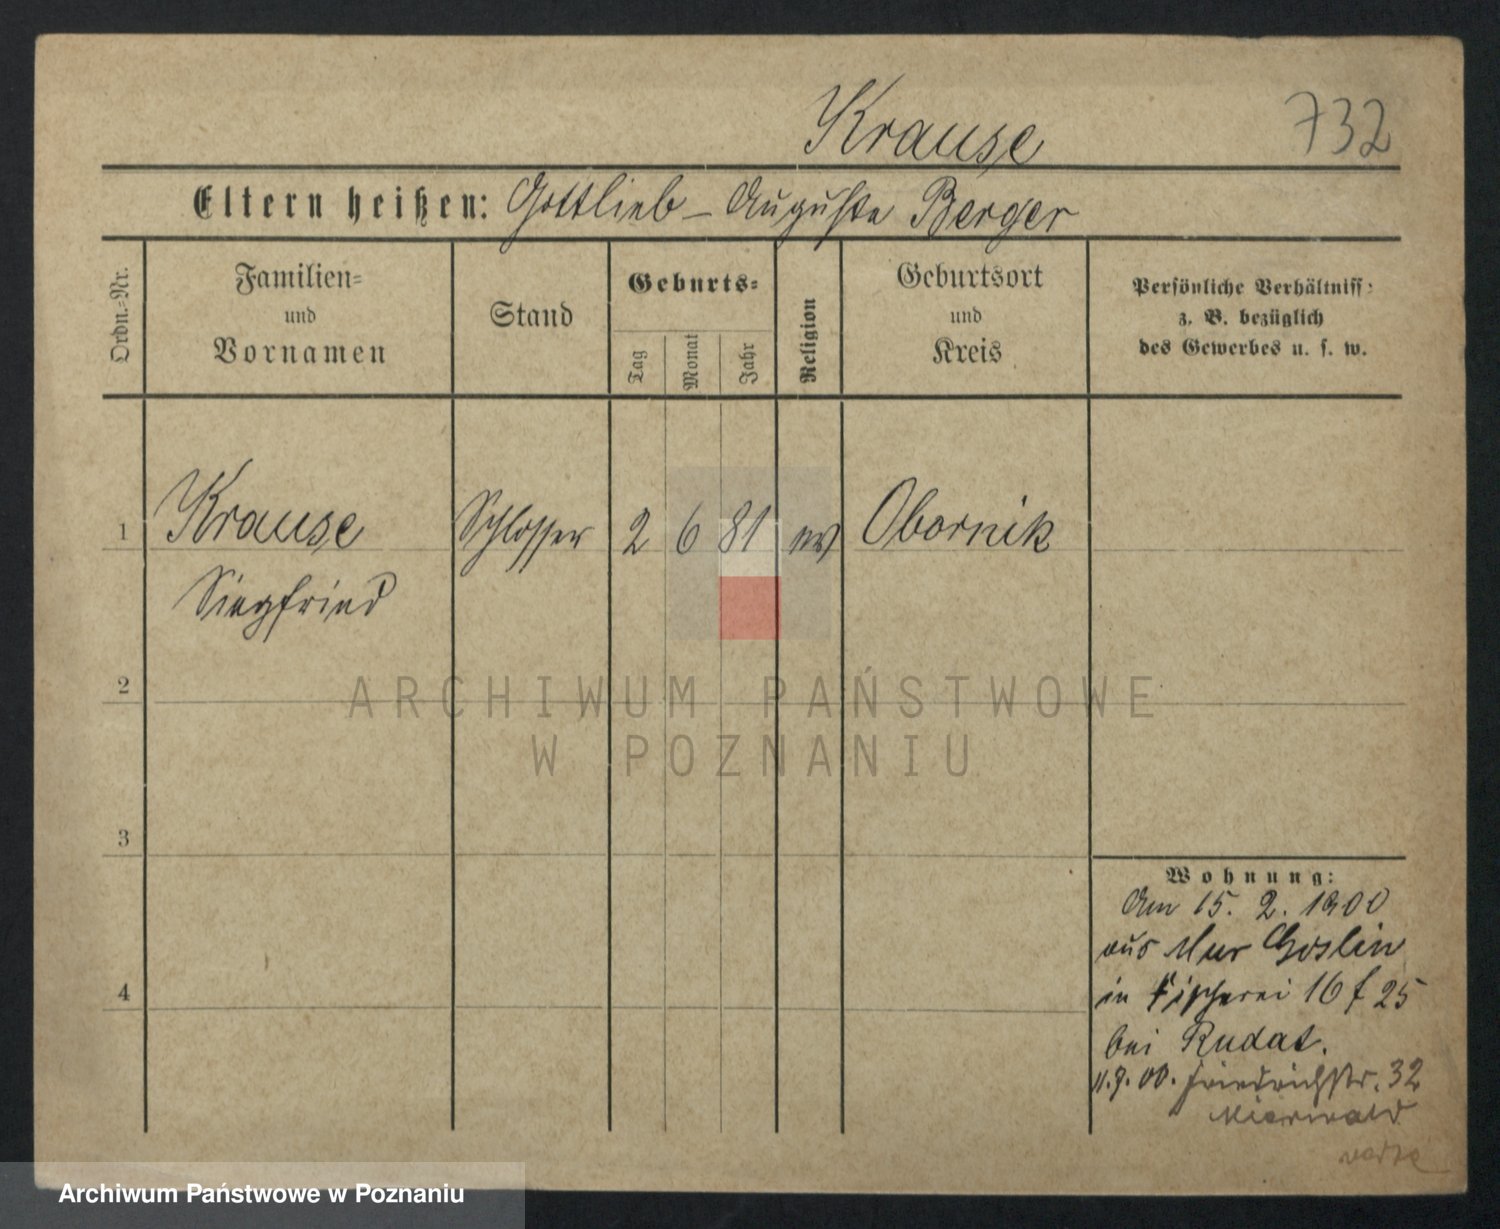 Krause 732
Eltern heißen: Gottlieb - Auguste Berger
Ordn.-Nr.
Familien-
und
Vornamen
Stand
Geburts-
Tag
Monat
Jahr
Religion
Geburtsort
und
Kreis
Persönliche Verhältniss:
z. B. bezüglich
des Gewerbes u. s. w.
1 Krause Schlosser 2 6 81 ev Obornik
Siegfried
2
3
4
ARCHIWUM PAŃSTWOWE
W POZNANIU
Wohnung:
Am 15. 2. 1900
aus Mur Goslin
in Fischerei 16 f 25
bei Rudat.
11.9.00. Friedrichstr. 32
Archiwum Państwowe w Poznaniu